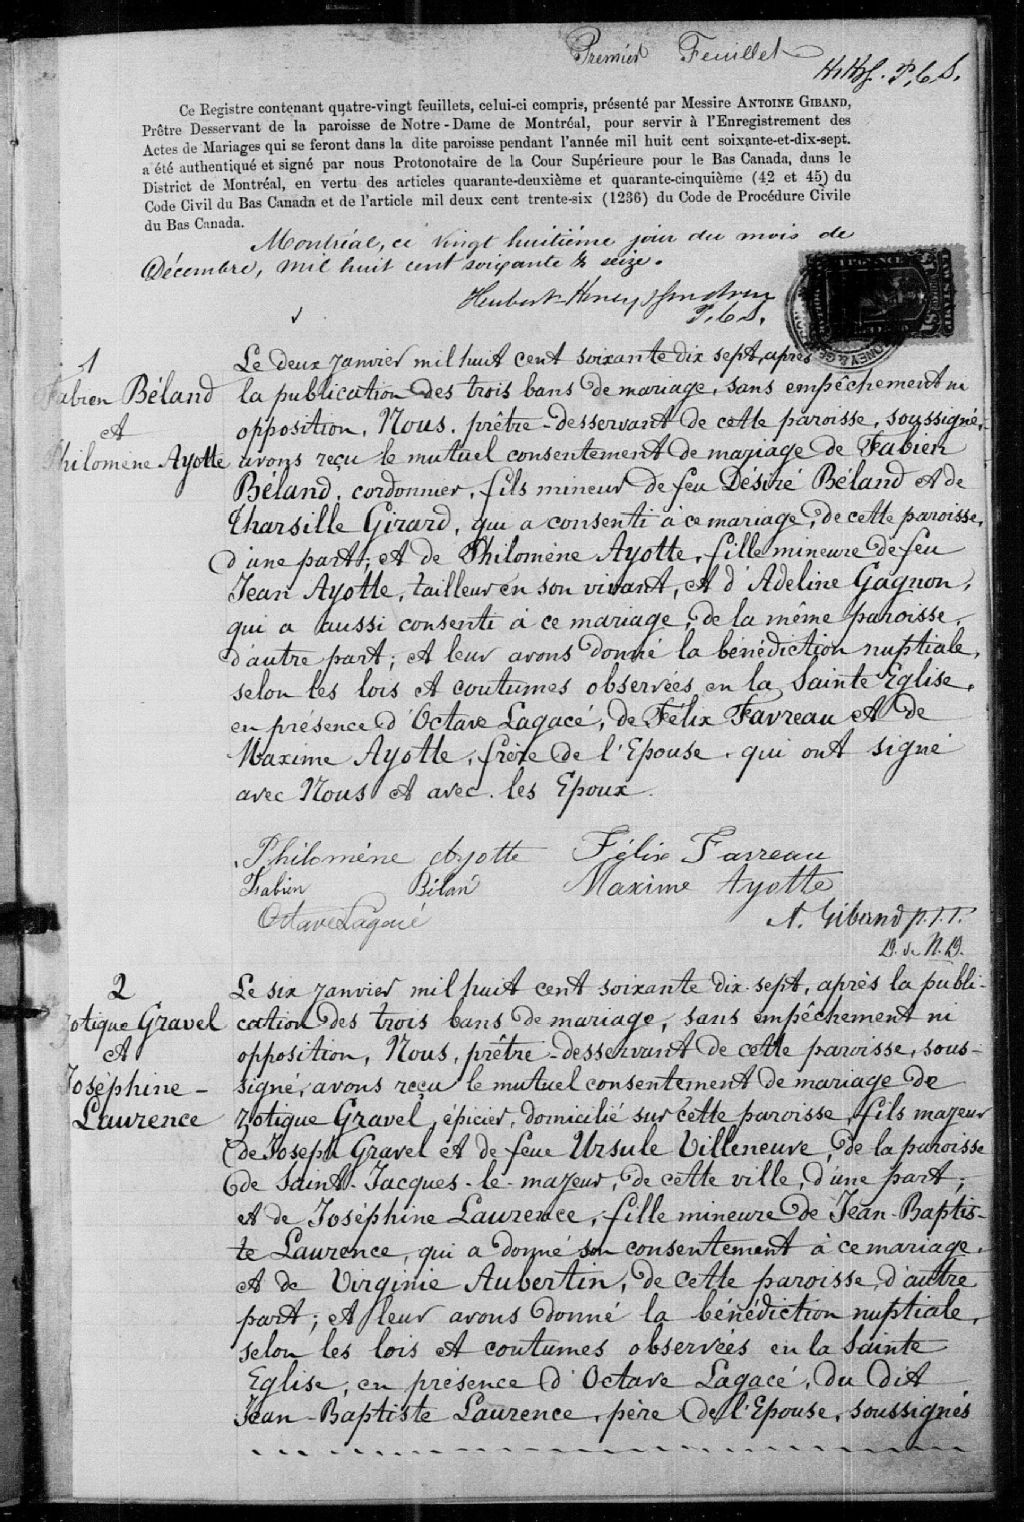 Premier Feuillet
HHf. P.C.S.
Ce Registre contenant quatre-vingt feuillets, celui-ci compris, présenté par Messire ANTOINE GIBAND,
Prêtre Desservant de la paroisse de Notre-Dame de Montréal, pour servir à l'Enregistrement des
Actes de Mariages qui se feront dans la dite paroisse pendant l'année mil huit cent soixante-et-dix-sept.
a été authentiqué et signé par nous Protonotaire de la Cour Supérieure pour le Bas Canada, dans le
District de Montréal, en vertu des articles quarante-deuxième et quarante-cinquième (42 et 45) du
Code Civil du Bas Canada et de l'article mil deux cent trente-six (1236) du Code de Procédure Civile
du Bas Canada.
Montréal, ce vingt huitième jour du mois de
Décembre, mil huit cent soixante & seize.
Hubert Honey
P.C.S.
1
Fabien Béland
et
Philomène Ayotte
Le deux janvier mil huit cent soixante dix sept, après
la publication des trois bans de mariage, sans empêchement ni
opposition, Nous, prêtre-desservant de cette paroisse, soussigné,
avons reçu le mutuel consentement de mariage de Fabien
Béland, cordonnier, fils mineur de feu Désiré Béland et de
Tharsille Girard, qui a consenti à ce mariage, de cette paroisse,
d'une part; et de Philomène Ayotte, fille mineure de feu
Jean Ayotte, tailleur en son vivant, et d'Adeline Gagnon,
qui a aussi consenti à ce mariage, de la même paroisse,
d'autre part; et leur avons donné la bénédiction nuptiale,
selon les lois et coutumes observées en la Sainte Eglise,
en présence d'Octave Lagacé, de Félix Favreau et de
Maxime Ayotte, frère de l'Epouse, qui ont signé
avec Nous et avec les Epoux.
Philomène Ayotte Félix Favreau
Fabien Bélan Maxime Ayotte
Octave Lagacé
A. Giband p.s.s.
D. de N.D.
2
Zotique Gravel
et
Joséphine-
Laurence
Le six janvier mil huit cent soixante dix-sept, après la publi-
cation des trois bans de mariage, sans empêchement ni
opposition, Nous, prêtre-desservant de cette paroisse, sous-
signé, avons reçu le mutuel consentement de mariage de
Zotique Gravel, épicier, domicilié sur cette paroisse, fils majeur
de Joseph Gravel et de feue Ursule Villeneuve, de la paroisse
de Saint-Jacques-le-majeur, de cette ville, d'une part;
et de Joséphine Laurence, fille mineure de Jean-Baptis-
te Laurence, qui a donné son consentement à ce mariage,
et de Virginie Aubertin, de cette paroisse, d'autre
part; et leur avons donné la bénédiction nuptiale,
selon les lois et coutumes observées en la Sainte
Eglise, en présence d'Octave Lagacé, du dit
Jean-Baptiste Laurence, père de l'Epouse, soussignés